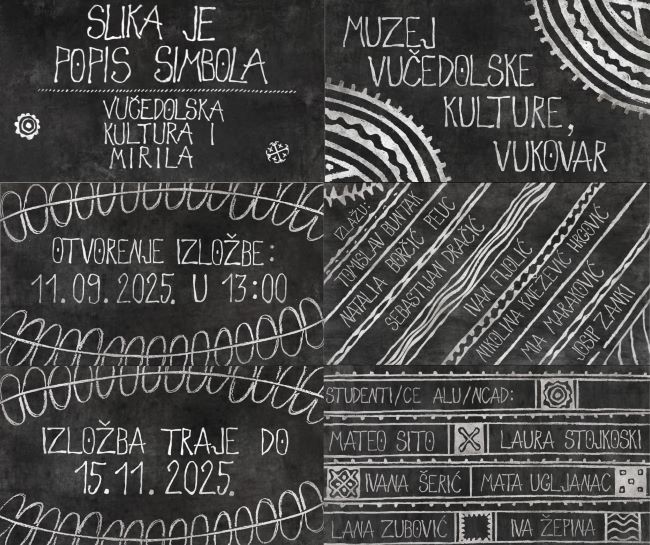 SLIKA JE
POPIS SIMBOLA
VUČEDOLSKA
KULTURA I
MIRILA
MUZEJ
VUČEDOLSKE
KULTURE,
VUKOVAR
OTVORENJE IZLOŽBE:
11.09.2025. U 13:00
IZLAŽU:
TOMISLAV BUNTAK
NATALIA BORČIĆ PEUC
SEBASTIJAN DRAČIĆ
IVAN FIJOLIĆ
NIKOLINA KNEŽEVIĆ HRGOVIĆ
MIA MARAKOVIĆ
JOSIP ZANKI
IZLOŽBA TRAJE DO
15.11.2025.
STUDENTI/CE ALU/NCAD:
MATEO SITO
LAURA STOJKOSKI
IVANA ŠERIĆ
MATA UGLJANAC
LANA ZUBOVIĆ
IVA ŽEPINA